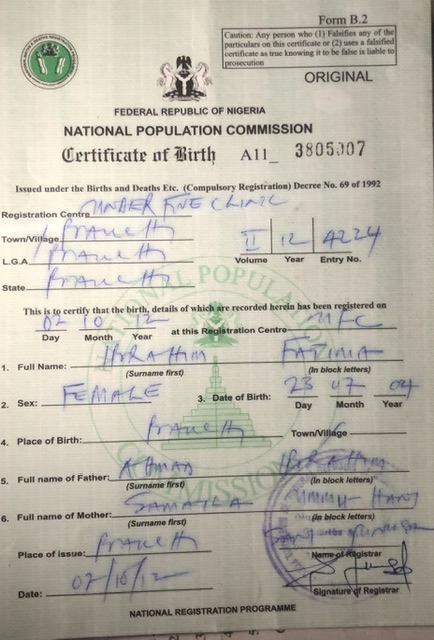 Form B.2
Caution: Any person who (1) Falsifies any of the
particulars on this certificate or (2) uses a falsified
certificate as true knowing it to be false is liable to
prosecution
ORIGINAL
FEDERAL REPUBLIC OF NIGERIA
NATIONAL POPULATION COMMISSION
Certificate of Birth A11_ 3805007
Issued under the Births and Deaths Etc. (Compulsory Registration) Decree No. 69 of 1992
Registration Centre UNDER FIVE CLINIC
Town/Village BAUCHI
L.G.A BAUCHI
State BAUCHI
II 12 4224
Volume Year Entry No.
This is to certify that the birth, details of which are recorded herein has been registered on
02 10 12 at this Registration Centre UFC
Day Month Year
1. Full Name: IBRAHIM FATIMA
(Surname first) (In block letters)
2. Sex: FEMALE 3. Date of Birth: 23 07 04
Day Month Year
4. Place of Birth: BAUCHI Town/Village
5. Full name of Father: IBRAHIM
(Surname first) (In block letters)
6. Full name of Mother: SAMAILA UMMU HANI
(Surname first) (In block letters)
Place of issue: BAUCHI
Name of Registrar
Date: 02/10/12
Signature of Registrar
NATIONAL REGISTRATION PROGRAMME